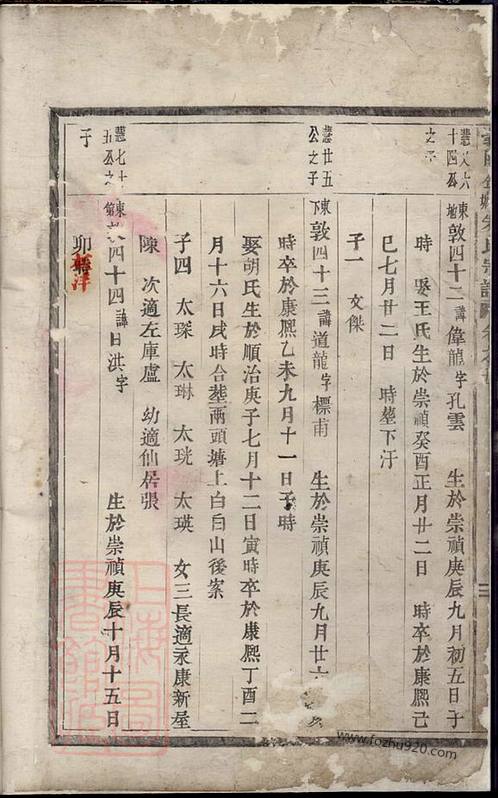 敦四十二 諱偉龍 字孔雲 生於崇禎庚辰九月初五日子
時 娶王氏生於崇禎癸酉正月廿二日 時卒於康熙己
巳七月廿二日 時塟下汙
子一 文傑
慧廿五
公之子
東下 敦四十三 諱道龍 字標甫 生於崇禎庚辰九月廿六
時卒於康熙乙未九月十一日子時
娶胡氏生於順治庚子七月十二日寅時卒於康熙丁酉二
月十六日戌時合塟兩頭塘上白白山後案
子四 太琛 太琳 太珖 太瑛 女三長適永康新屋
陳 次適左庫盧 幼適仙居張
慧七十
五公之
子
四十四 諱日洪 字 生於崇禎庚辰十月十五日
卯
上海圖
書館藏
www.fozhu920.com